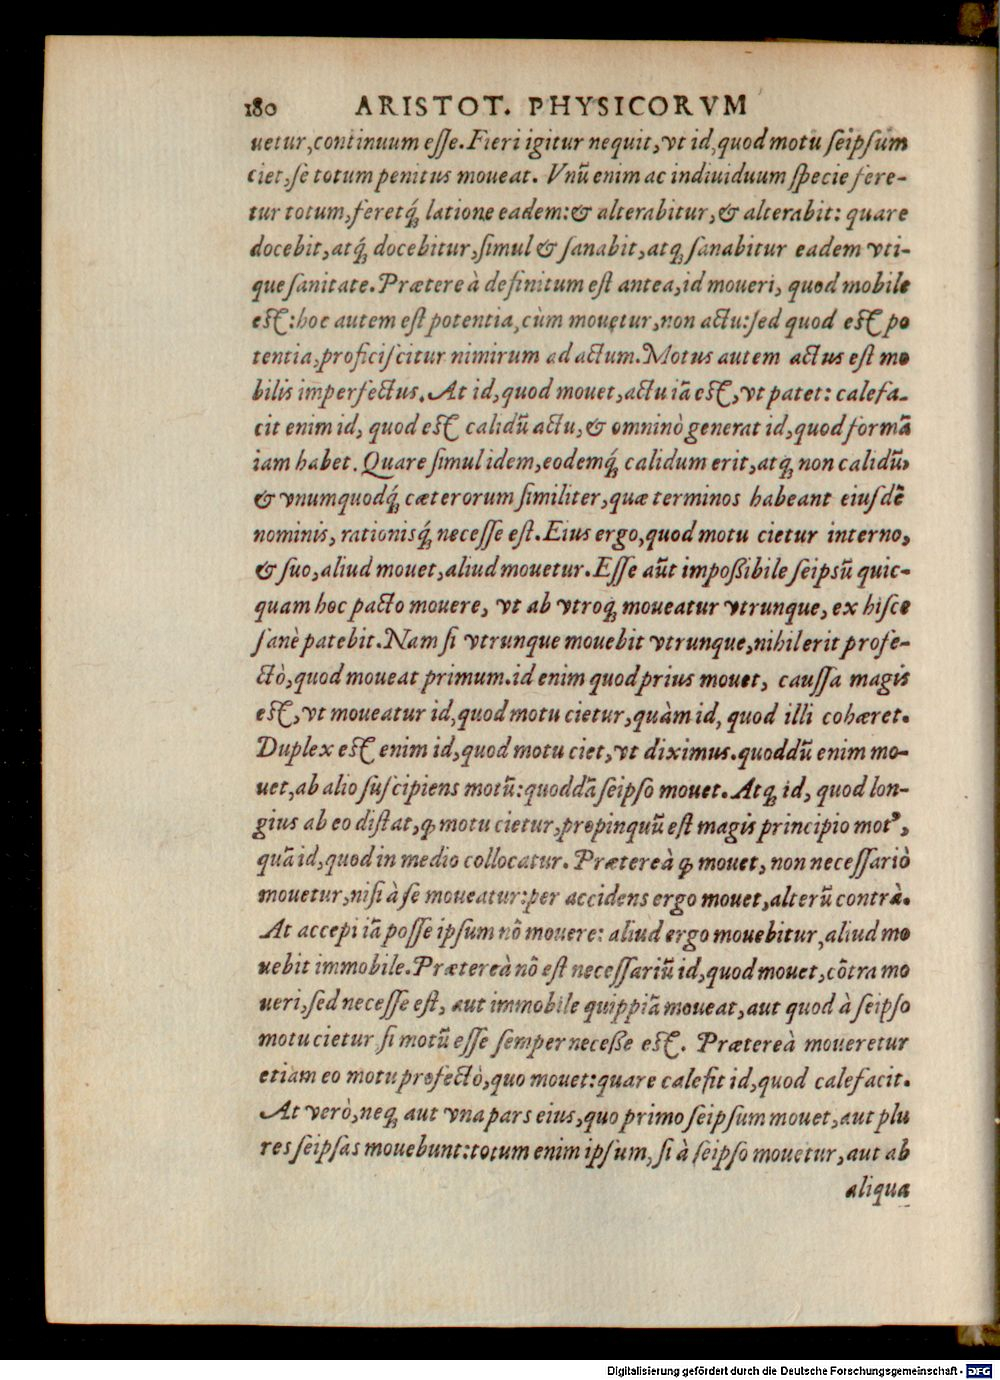 180 ARISTOT. PHYSICORVM
uetur, continuum esse. Fieri igitur nequit, vt id, quod motu seipsum
ciet, se totum penitus moueat. Vnũ enim ac indiuiduum specie fere-
tur totum, feretq́; latione eadem: & alterabitur, & alterabit: quare
docebit, atq́; docebitur, simul & sanabit, atq; sanabitur eadem vti-
que sanitate. Prætereà definitum est antea, id moueri, quod mobile
est: hoc autem est potentia, cùm mouetur, non actu: sed quod est po
tentia, proficiscitur nimirum ad actum. Motus autem actus est mo
bilis imperfectus. At id, quod mouet, actu iã est, vt patet: calefa-
cit enim id, quod est calidũ actu, & omninò generat id, quod formã
iam habet. Quare simul idem, eodemq́; calidum erit, atq; non calidũ,
& vnumquodq́; cæterorum similiter, quæ terminos habeant eiusdẽ
nominis, rationisq́; necesse est. Eius ergo, quod motu cietur interno,
& suo, aliud mouet, aliud mouetur. Esse aũt impoßibile seipsũ quic-
quam hoc pacto mouere, vt ab vtroq; moueatur vtrunque, ex hisce
sanè patebit. Nam si vtrunque mouebit vtrunque, nihil erit profe-
ctò, quod moueat primum. id enim quod prius mouet, caussa magis
est, vt moueatur id, quod motu cietur, quàm id, quod illi cohæret.
Duplex est enim id, quod motu ciet, vt diximus. quoddũ enim mo-
uet, ab alio suscipiens motũ: quoddã seipso mouet. Atq; id, quod lon-
gius ab eo distat, ꝙ motu cietur, propinquũ est magis principio motꝰ,
quã id, quod in medio collocatur. Prætereà ꝙ mouet, non necessariò
mouetur, nisi à se moueatur: per accidens ergo mouet, alterũ contrà.
At accepi iã posse ipsum nõ mouere: aliud ergo mouebitur, aliud mo
uebit immobile. Prætereà nõ est necessariũ id, quod mouet, cõtra mo
ueri, sed necesse est, aut immobile quippiã moueat, aut quod à seipso
motu cietur, si motũ esse semper neceße est. Prætereà moueretur
etiam eo motu profectò, quo mouet: quare calefit id, quod calefacit.
At verò, neq; aut vna pars eius, quo primo seipsum mouet, aut plu
res seipsas mouebunt: totum enim ipsum, si à seipso mouetur, aut ab
aliqua
Digitalisierung gefördert durch die Deutsche Forschungsgemeinschaft - DFG